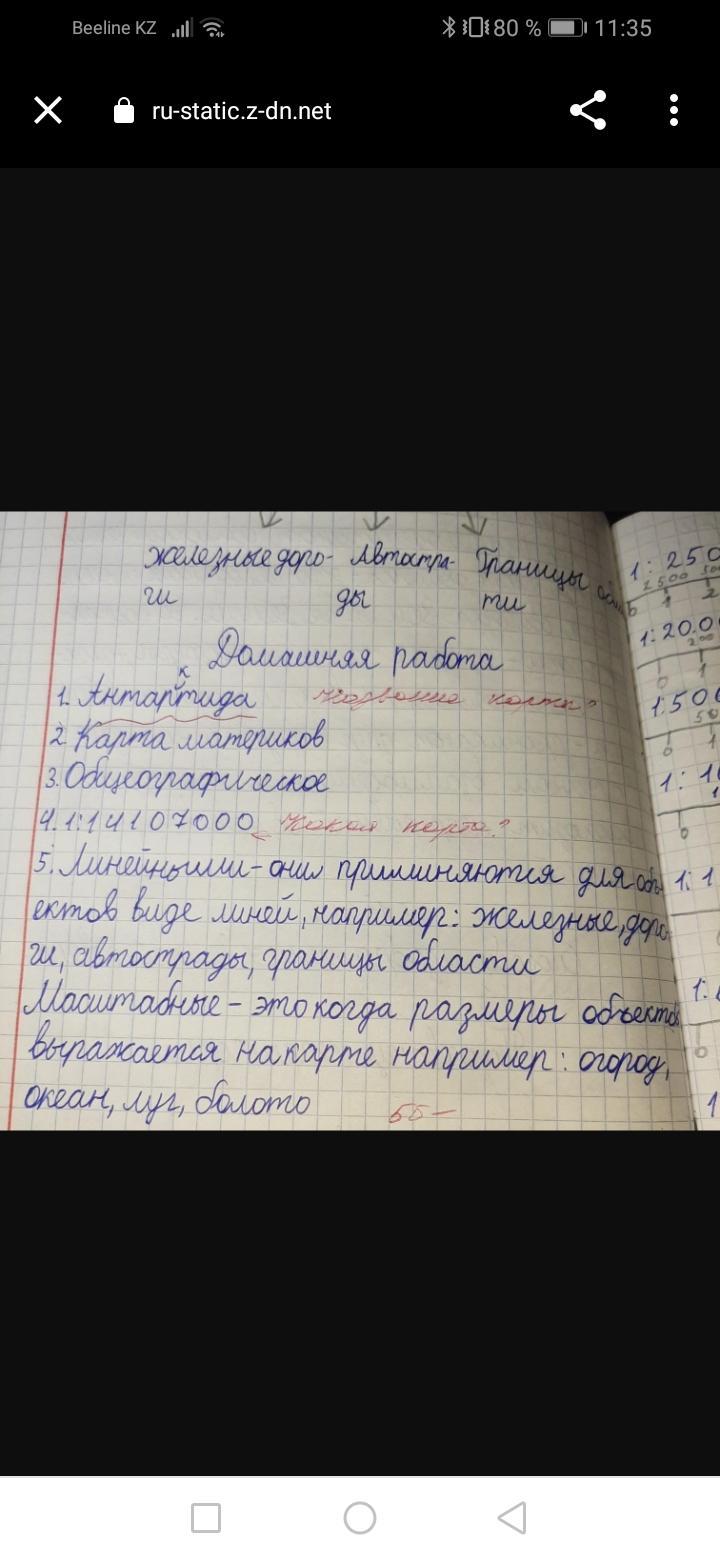 Beeline KZ 80 % 11:35
ru-static.z-dn.net
железные доро- Автостра- Границы
ги ды ти
1: 250
2500
0 1 2
Домашняя работа
1:20.0
200
0 1
к
1. Антартида Название карты?
1:500
50
0 1
2. Карта материков
3. Общеографическое
4. 1:14107000 Какая карта?
0
5. Линейными - они приминяются для объ
1: 1
ектов виде линей, например: железные, доро
ги, автострады, границы области
Масштабные - это когда размеры объектов
0
выражается на карте например: огород,
океан, луг, болото
1